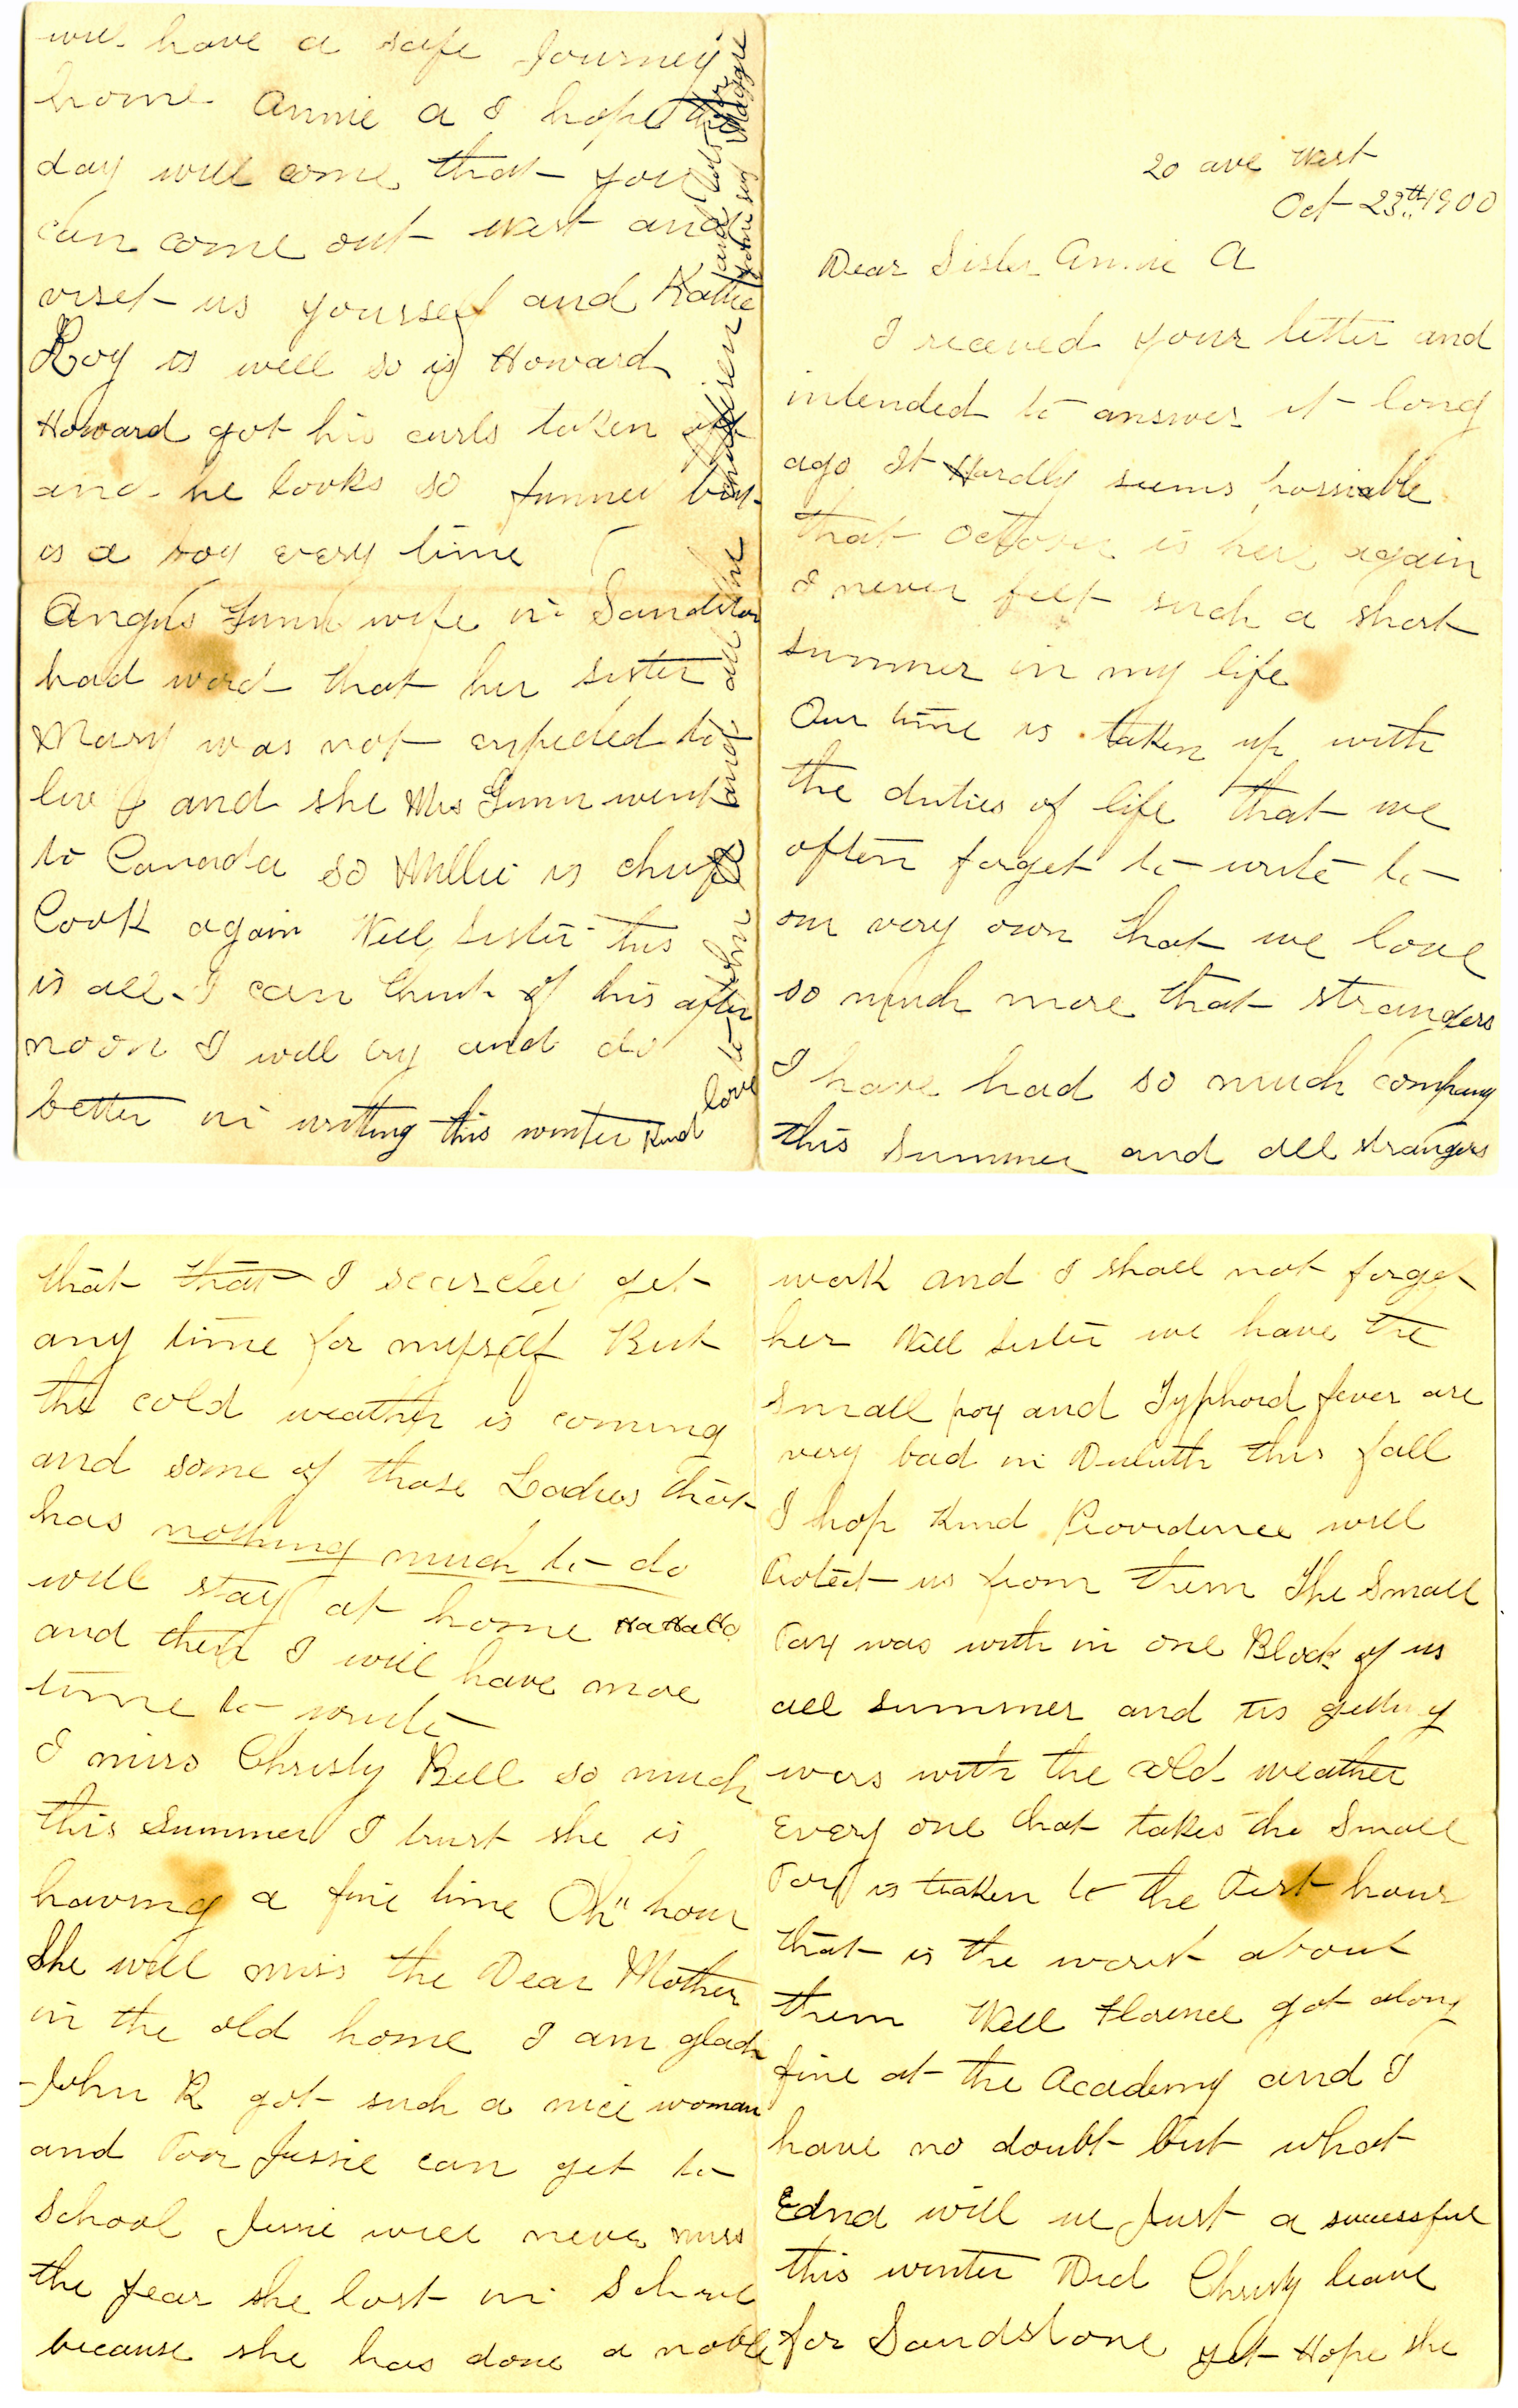 20 ave West
Oct 23th 1900
Dear Sister Annie A
I receued your letter and
intended to answer it long
ago It Hardly seems possiable
that October is here again
I never felt such a short
summer in my life
Our time is taken up with
the duties of life that we
often forget to write to
our very own that we love
so much more that strangers
I have had so much company
this summer and all strangers
that that I scarcley get
any time for myself But
the cold weather is coming
and some of those Ladies that
has nothing much to do
will stay at home HaHaHa
and then I will have moe
time to write
I miss Christy Bell so much
this Summer I trust she is
having a fine time Oh" how
She will miss the Dear Mother
in the old home I am glad
John R got such a nice woman
and Poor Jessie can get to
School Jessie will never miss
the year she lost in School
because she has done a noble
work and I shall not forget
her Well Sister we have the
Small pox and Typhoid fever are
very bad in Duluth this fall
I hop Kind Providence will
Protect us from them The Small
Pox was with in one Block of us
all summer and tis getting
wors with the cold weather
Every one that takes the Small
Pox is taken to the Pest house
that is the worst about
them Well Florence got along
fine at the Academy and I
have no doubt but what
Edna will be Just a successful
this winter Did Christy leave
for Sandstone yet Hope she
will have a safe Journey
home Annie A I hope the
day will come that you
can come out West and
viset us yourself and Katie
Roy is well so is Howard
Howard got his curls taken off
and he looks so funney but
is a boy every time
Angus Gunn wife in Sandston
had word that her sister
Mary was not expected to
live and she Mrs Gunn went
to Canada so Millie is chief
Cook again Well Sister this
is all I can think of this after
noon I will try and do
better in writing this winter Kind
love to John R and all the
children and